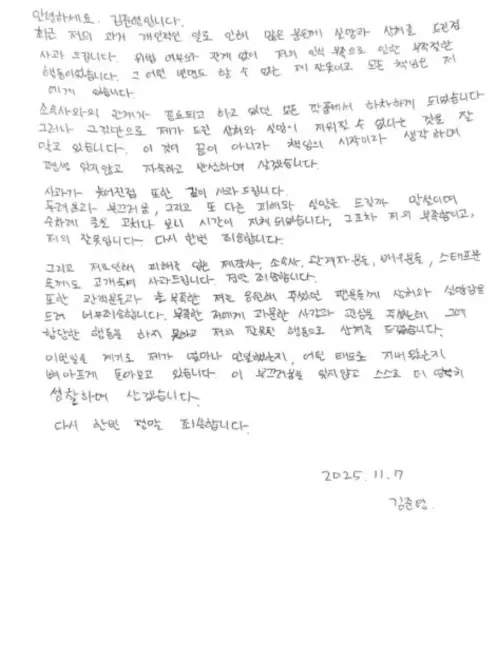 안녕하세요. 김준영입니다.
최근 저의 과거 개인적인 일로 인해 많은 분들께 실망과 상처를 드린점
사과 드립니다. 위법 여부와 관계 없이 저의 인식 부족으로 인한 부적절한
행동이었습니다. 그 어떤 변명도 할 수 없는 제 잘못이고 모든 책임은 저
에게 있습니다.
소속사와의 관계가 종료되고 하고 있던 모든 작품에서 하차하게 되었습니다
그러나 그것만으로 제가 드린 상처와 실망이 지워질 수 없다는 것을 잘
알고 있습니다. 이 것이 끝이 아니라 책임의 시작이라 생각하며
평생 잊지않고 자숙하고 반성하며 살겠습니다.
사과가 늦어진점 또한 깊이 사과드립니다.
두려움과 부끄러움, 그리고 또 다른 피해와 실망을 드릴까 망설이며
수차례 글을 고치다 보니 시간이 지체 되었습니다, 그조차 저의 부족함이고,
저의 잘못입니다. 다시 한번 죄송합니다.
그리고 저로인해 피해를 입은 제작사, 소속사, 관계자분들, 배우분들, 스태프분
들께도 고개숙여 사과드립니다. 정말 죄송합니다.
또한 관객분들과 부족한 저를 응원해 주셨던 팬분들께 상처와 실망감을
드려 너무죄송합니다. 부족한 저에게 과분한 사랑과 관심을 주셨는데 그에
합당한 행동을 하지 못하고 저의 잘못된 행동으로 상처를 드렸습니다.
이번일을 계기로 제가 얼마나 안일했는지, 어떤 태도로 지내왔는지
뼈아프게 돌아보고 있습니다. 이 부끄러움을 잊지않고 스스로 더 엄격히
성찰하며 살겠습니다.
다시 한번 정말 죄송합니다.
2025.11.7
김준영.